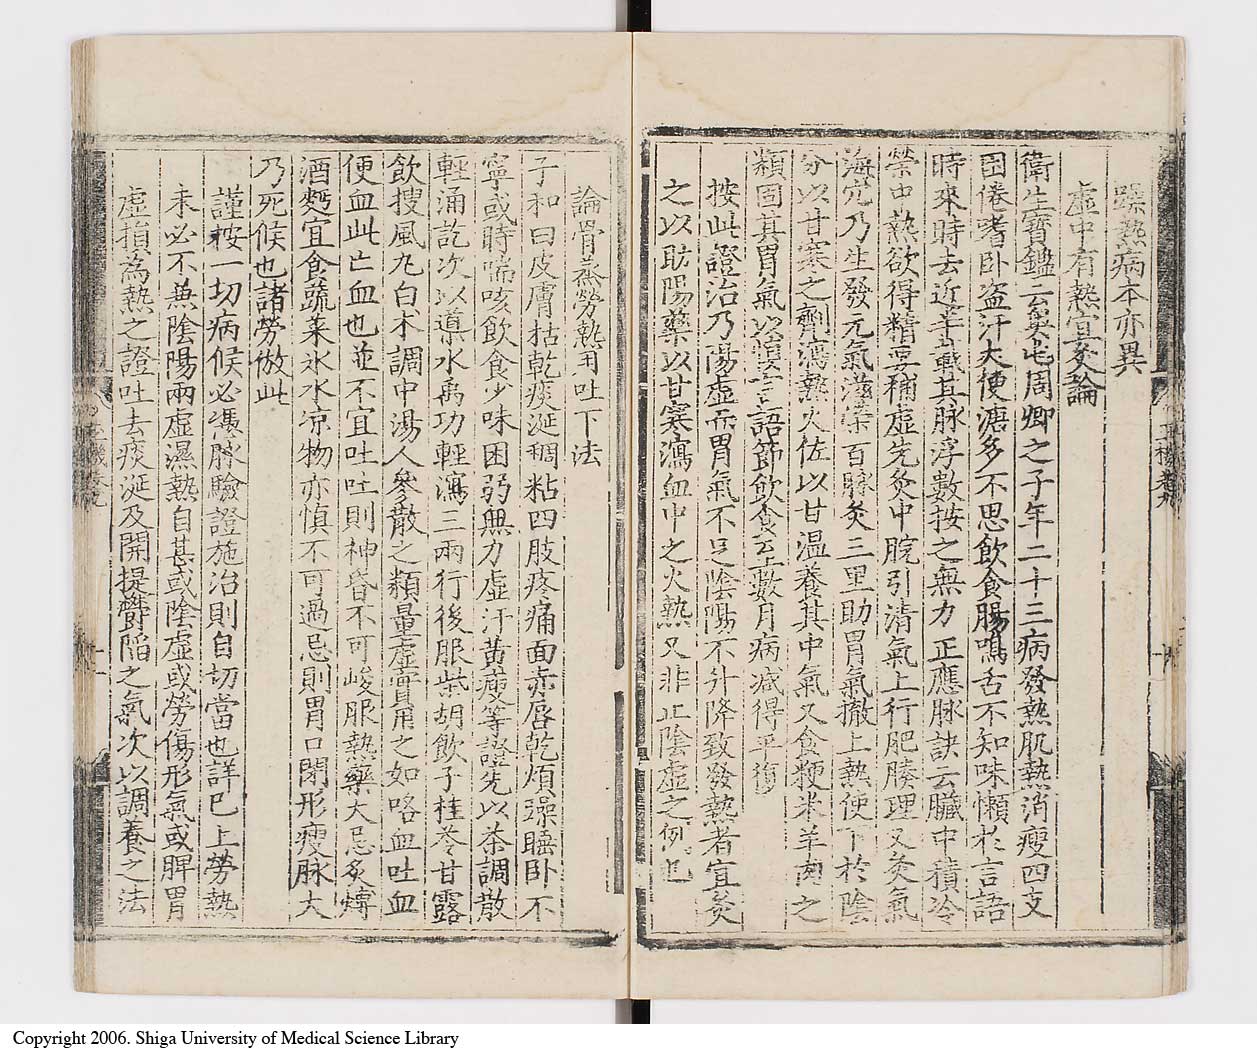 躁熱病本亦異
虛中有熱宜灸論
衛生寶鑑云奚屯周卿之子年二十三病發熱肌熱消瘦四支
困倦嗜卧盗汗大便溏多不思飲食腸鳴舌不知味懶於言語
時來時去近半載其脉浮數按之無力正應脉訣云臟中積冷
榮中熱欲得精要補虛先灸中脘引清氣上行肥腠理又灸氣
海穴乃生發元氣滋榮百脉灸三里助胃氣撤上熱使下於陰
分以甘寒之劑瀉熱火佐以甘温養其中氣又食粳米羊肉之
類固其胃氣以復言語節飲食至數月病减得平復
按此證治乃陽虛而胃氣不足陰陽不升降致發熱者宜灸
之以助陽藥以甘寒瀉血中之火熱又非止陰虛之例也
論骨蒸勞熱用吐下法
子和曰皮膚枯乾痰涎稠粘四肢疼痛面赤唇乾煩躁睡卧不
寧或時喘咳飲食少味困弱無力虛汗黄瘦等證先以茶調散
輕涌訖次以導水禹功輕瀉三兩行後服柴胡飲子桂苓甘露
飲搜風丸白术調中湯人參散之類量虛實用之如咯血吐血
便血此亡血也並不宜吐吐則神昏不可峻服熱藥大忌炙煿
酒麪宜食蔬菜氷水凉物亦慎不可過忌則胃口閉形瘦脉大
乃死候也諸勞倣此
謹按一切病候必憑脉驗證施治則自切當也詳已上勞熱
未必不無陰陽兩虛濕熱自甚或陰虛或勞傷形氣或脾胃
虛損爲熱之證吐去痰涎及開提欝䧟之氣次以調養之法